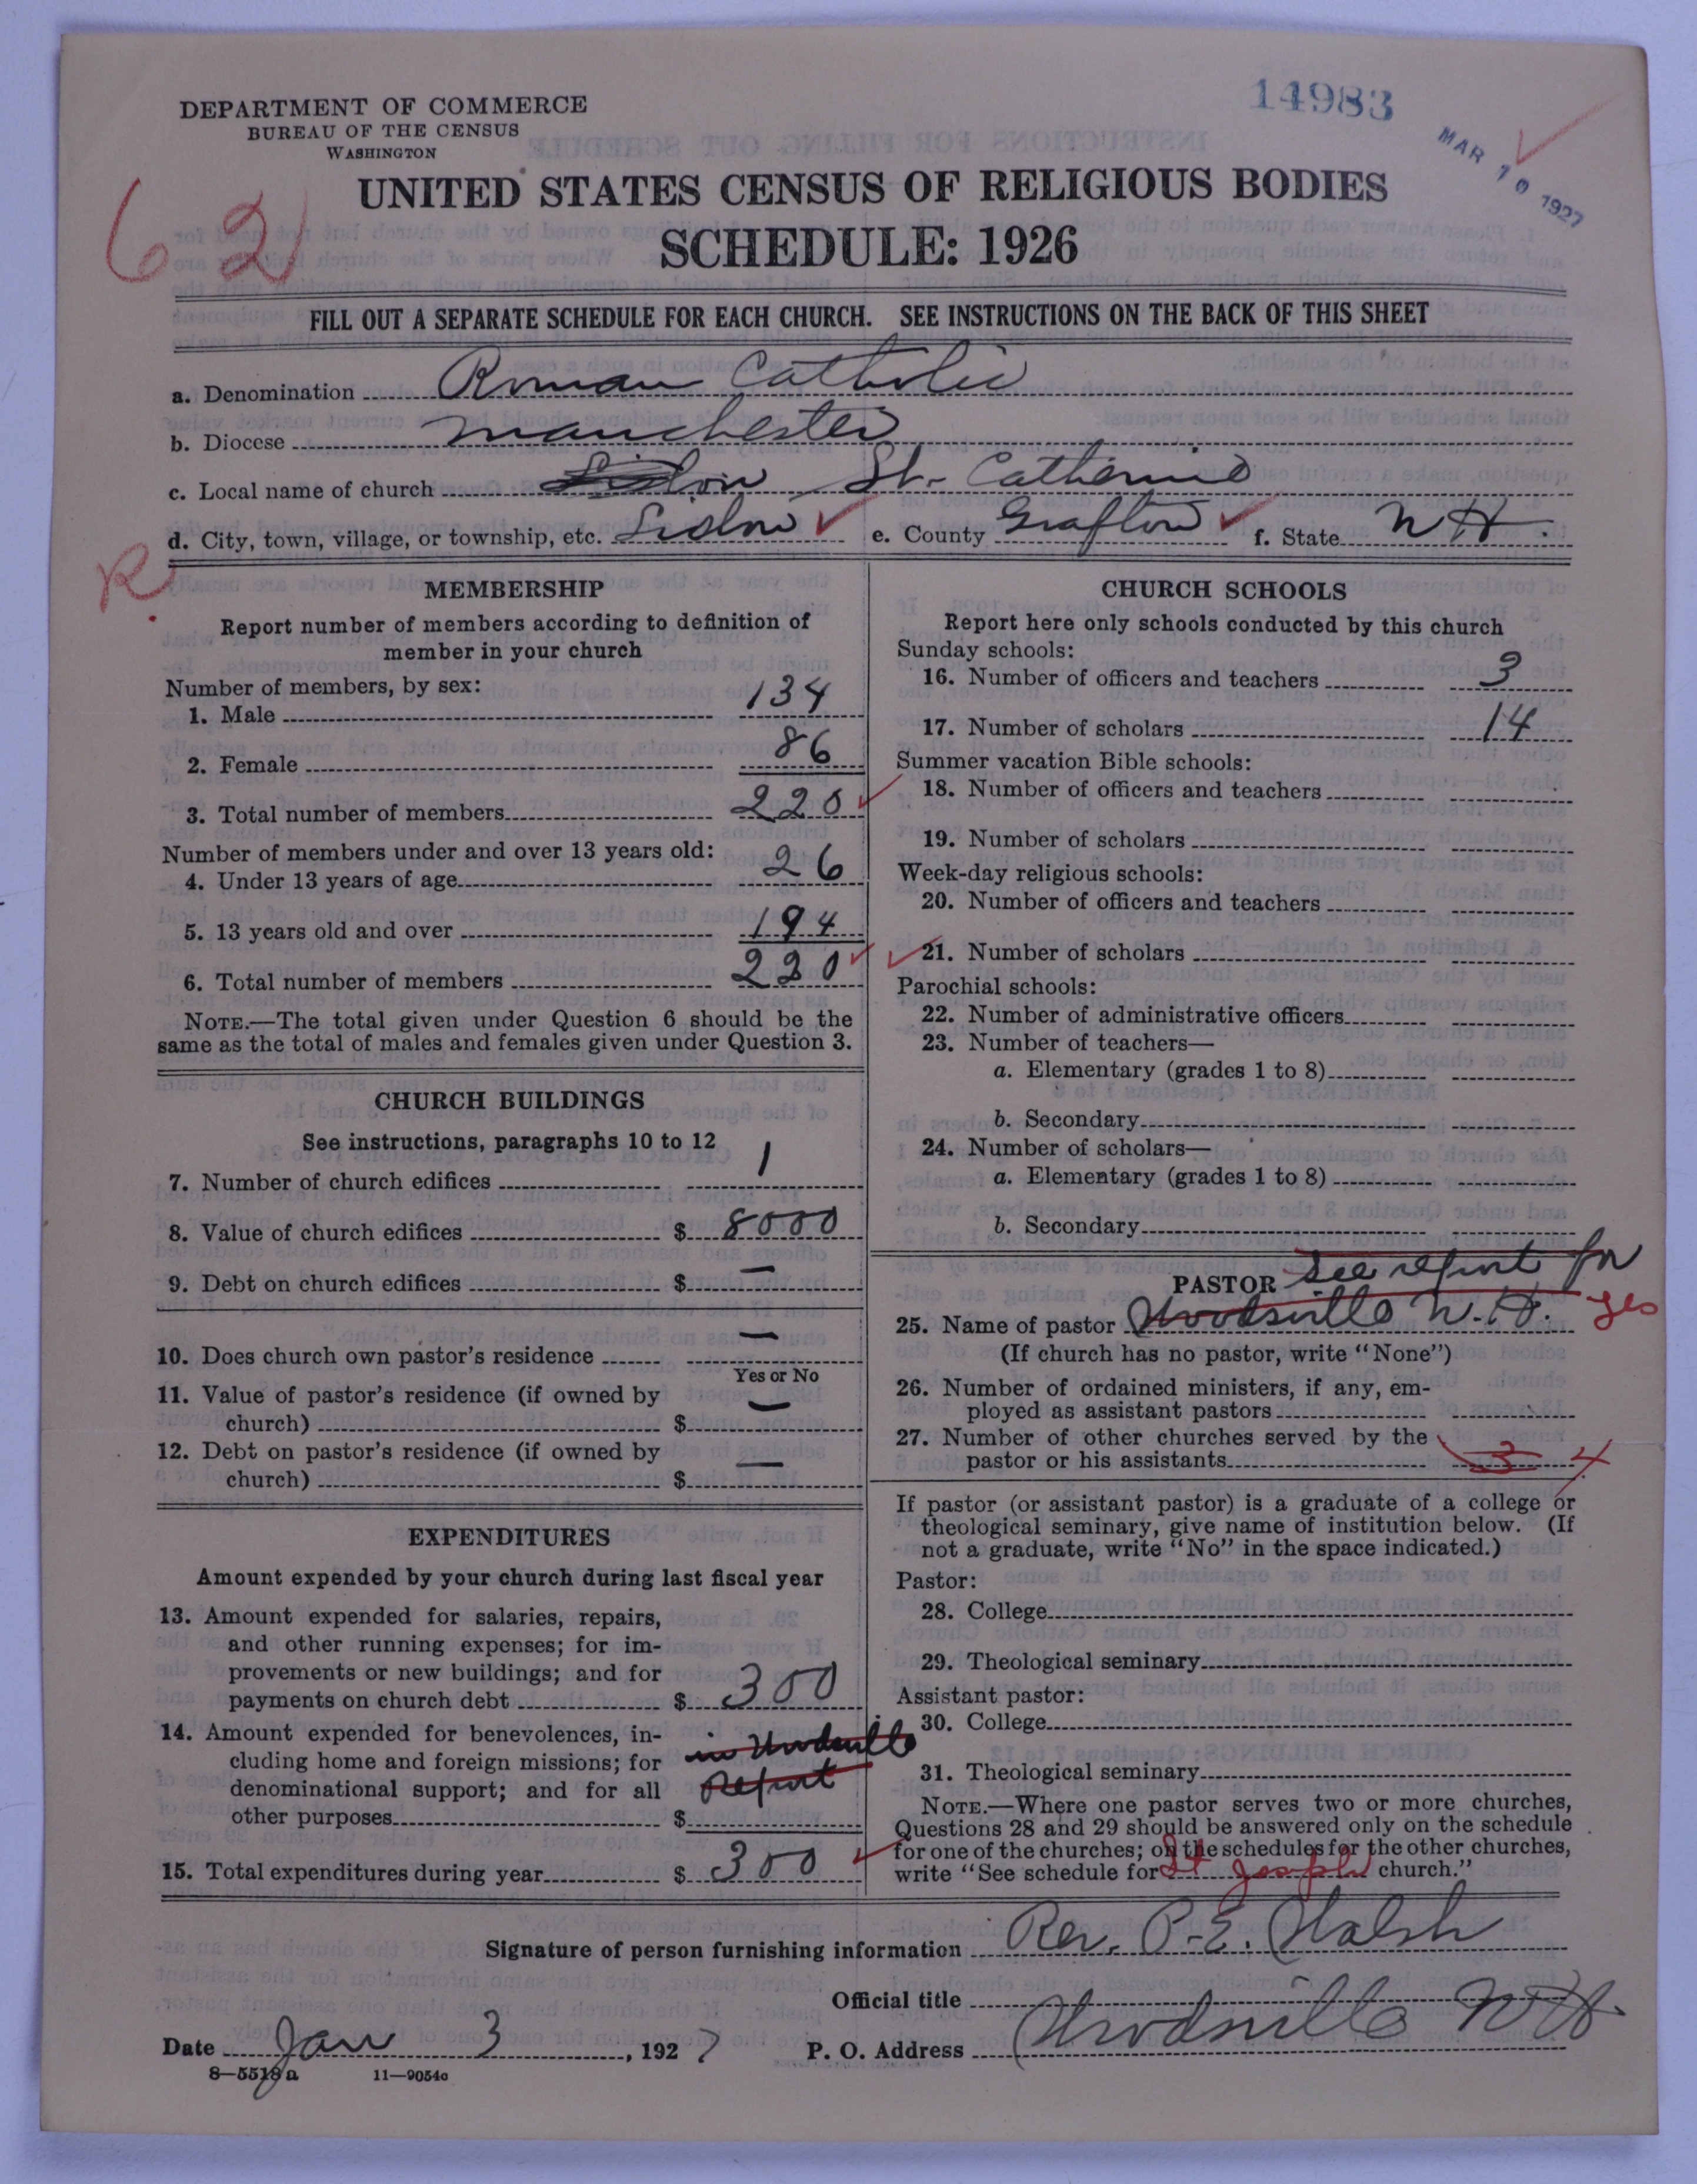 14983
MAR 10 1927
DEPARTMENT OF COMMERCE
BUREAU OF THE CENSUS
WASHINGTON
62
UNITED STATES CENSUS OF RELIGIOUS BODIES
SCHEDULE: 1926
FILL OUT A SEPARATE SCHEDULE FOR EACH CHURCH. SEE INSTRUCTIONS ON THE BACK OF THIS SHEET
a. Denomination Roman Catholic
b. Diocese Manchester
c. Local name of church Lisbon St. Catherine
d. City, town, village, or township, etc. Lisbon e. County Grafton f. State N H.
R
MEMBERSHIP
Report number of members according to definition of
member in your church
Number of members, by sex:
1. Male 134
2. Female 86
3. Total number of members 220
Number of members under and over 13 years old:
4. Under 13 years of age 26
5. 13 years old and over 194
6. Total number of members 220
NOTE.—The total given under Question 6 should be the
same as the total of males and females given under Question 3.
CHURCH BUILDINGS
See instructions, paragraphs 10 to 12
7. Number of church edifices 1
8. Value of church edifices $ 8000
9. Debt on church edifices $ —
10. Does church own pastor's residence —
Yes or No
11. Value of pastor's residence (if owned by
church) $ —
12. Debt on pastor's residence (if owned by
church) $ —
EXPENDITURES
Amount expended by your church during last fiscal year
13. Amount expended for salaries, repairs,
and other running expenses; for im-
provements or new buildings; and for
payments on church debt $ 300
14. Amount expended for benevolences, in-
cluding home and foreign missions; for
denominational support; and for all
other purposes $
in Woodsville
Report
15. Total expenditures during year $ 300
CHURCH SCHOOLS
Report here only schools conducted by this church
Sunday schools:
16. Number of officers and teachers 3
17. Number of scholars 14
Summer vacation Bible schools:
18. Number of officers and teachers
19. Number of scholars
Week-day religious schools:
20. Number of officers and teachers
21. Number of scholars
Parochial schools:
22. Number of administrative officers
23. Number of teachers—
a. Elementary (grades 1 to 8)
b. Secondary
24. Number of scholars—
a. Elementary (grades 1 to 8)
b. Secondary
PASTOR See report for
25. Name of pastor Woodsville N.H. yes
(If church has no pastor, write "None")
26. Number of ordained ministers, if any, em-
ployed as assistant pastors
27. Number of other churches served by the
pastor or his assistants 3 4
If pastor (or assistant pastor) is a graduate of a college or
theological seminary, give name of institution below. (If
not a graduate, write "No" in the space indicated.)
Pastor:
28. College
29. Theological seminary
Assistant pastor:
30. College
31. Theological seminary
NOTE.—Where one pastor serves two or more churches,
Questions 28 and 29 should be answered only on the schedule
for one of the churches; on the schedules for the other churches,
write "See schedule for St Joseph church."
Signature of person furnishing information Rev. P. E. Walsh
Official title
Date Jan 3, 1927 P. O. Address Woodsville N H
8—5518a 11—9054c